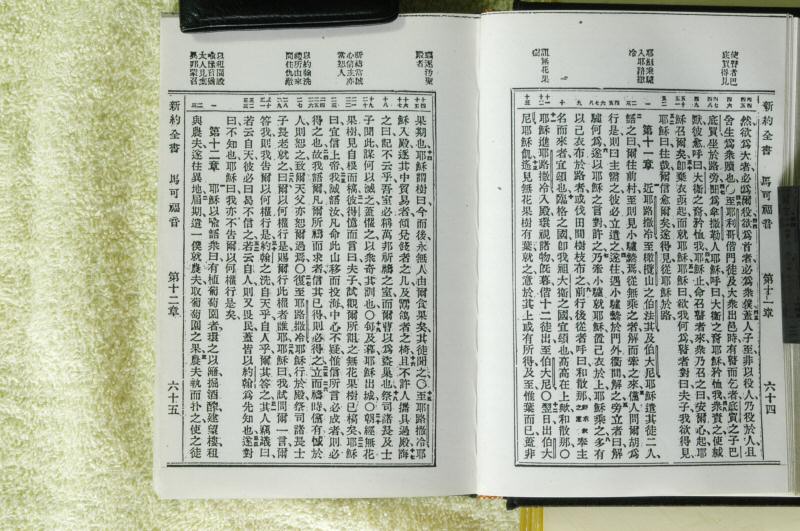 使瞽者巴底買得見
耶穌乘驢入耶路撒冷
詛無花果樹
新約全書 馬可福音 第十一章 六十四
然欲爲大者必爲爾役欲爲首者必爲衆僕蓋人子至非以役人乃役於人且
舍生爲衆贖也〇至耶利哥偕門徒及大衆出邑時有瞽而乞者底買之子巴
底買坐於路旁聞爲拿撒勒人耶穌呼曰大衛之裔耶穌矜恤我衆責之使緘
默彼愈呼曰大衛之裔矜恤我耶穌止命召瞽者來衆乃召之曰安爾心起耶
穌召爾矣卽棄衣亟起而就耶穌耶穌曰欲我何爲瞽者對曰夫子我欲得見
耶穌曰往哉爾信愈爾矣遂得見從耶穌於路
第十一章 近耶路撒冷至橄欖山之伯法其及伯大尼耶穌遣其徒二人
語之曰爾往前村至則見小驢縶焉從無乘之者解而牽之來儻人問爾胡爲
行是則曰主需之彼必立遣之遂往遇小驢繫於門外衢間解之旁立者曰解
驢何爲遂以耶穌之言對許之乃牽小驢就耶穌置己衣於上耶穌乘之多有
以己衣布於路者或伐田間樹枝布之前行後從者呼曰和散那奉主
名而來者宜頌也臨格之國卽我祖大衛之國宜頌也高高在上歟和散那〇
耶穌進耶路撒冷入殿環視諸物旣暮偕十二徒出至伯大尼〇翌日出伯大
尼耶穌飢遙見無花果樹有葉就之意於其上或有所得及至惟葉而已蓋非
驅逐污聖殿者
祈禱當誠心信主亦當恕人
以約翰洗禮所由來問仇敵
以租園設喻預言猶太人見棄異邦蒙召
果期也耶穌謂樹曰今而後永無人由爾食果矣其徒聞之〇至耶路撒冷耶
穌入殿逐其中貿易者傾兌錢者之几及鬻鴿者之椅且不許人攜具過殿誨
之曰記不云乎吾室必稱萬邦祈禱之室而爾曹以爲盜巢也祭司諸長及士
子聞此謀何以滅之蓋懼之以衆奇其訓也〇旬及暮耶穌出城〇朝經無花
果樹見自根而槁彼得憶而言曰夫子試觀爾所詛之無花果樹已槁矣耶穌
曰宜信上帝我誠語汝凡命此山移而投海中心不疑惟信所言必成者則必
得之也故我語爾凡爾所禱而求者信其已得則必得之立而禱時儻有憾於
人則恕之致爾天父亦恕爾過焉〇復至耶路撒冷耶穌行於殿祭司諸長士
子長老就之曰爾以何權行是賜爾行此權者誰耶耶穌曰我試問爾一言爾
答我則我告爾以何權行是約翰之洗自天乎自人乎爾其答之其人竊議曰
若云自天彼必曰曷不信之若云自人則又畏民蓋皆以約翰爲先知也遂對
曰不知也耶穌曰我亦不告爾以何權行是矣
第十二章 耶穌以喻語衆曰有植葡萄園者環之以籬掘酒醡建望樓租
與農夫遂往異地屆期遣一僕就農夫取葡萄園之果農夫執而扑之使之徒
新約全書 馬可福音 第十二章 六十五